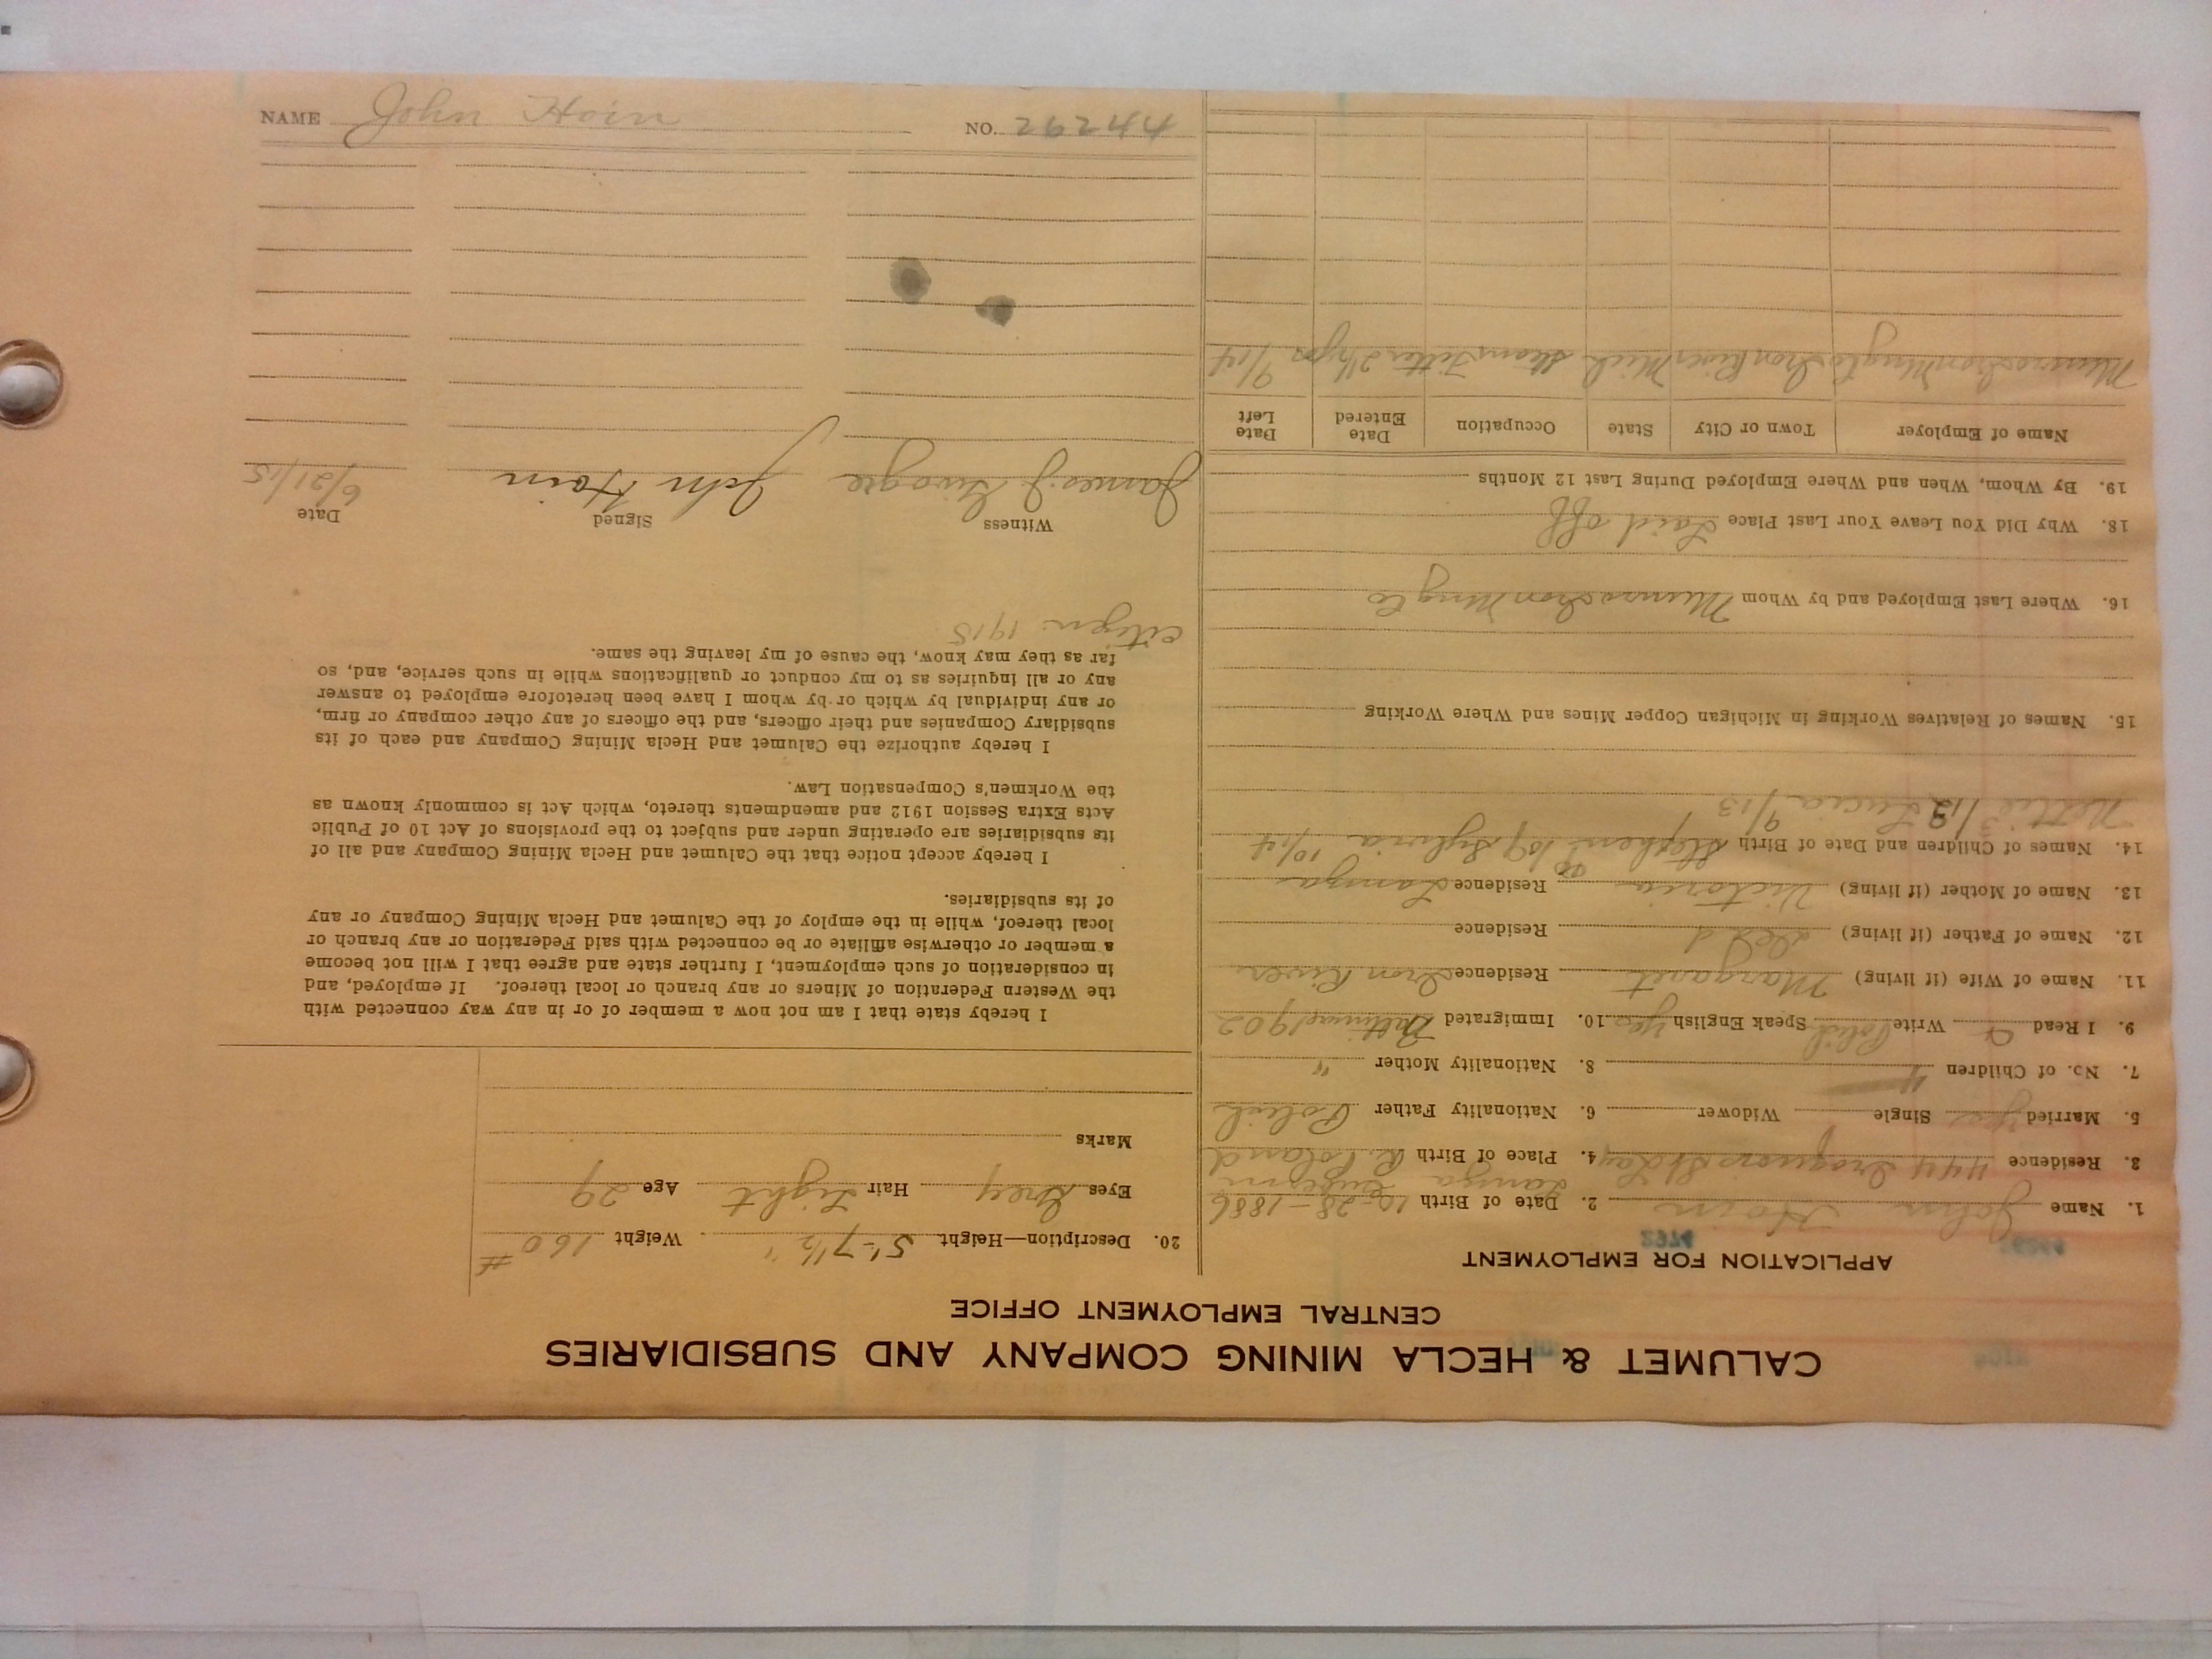 CALUMET & HECLA MINING COMPANY AND SUBSIDIARIES
CENTRAL EMPLOYMENT OFFICE
APPLICATION FOR EMPLOYMENT
1. Name John Hoin 2. Date of Birth 10-28-1886
3. Residence 444 Iroquois St 4. Place of Birth R. Poland
5. Married yes Single Widower 6. Nationality Father Polish
7. No. of Children 4 8. Nationality Mother "
9. I Read & Write Polish Speak English yes 10. Immigrated Baltimore 1902
11. Name of Wife (if living) Margaret Residence Iron River
12. Name of Father (if living) ded Residence
13. Name of Mother (if living) Victoria Residence Lamza
14. Names of Children and Date of Birth Stephen Sylvia 10/14
Nettie 3/12 Lucia 9/13
15. Names of Relatives Working in Michigan Copper Mines and Where Working
16. Where Last Employed and by Whom Munro Iron Mng Co
18. Why Did You Leave Your Last Place Laid off
19. By Whom, When and Where Employed During Last 12 Months
Name of Employer Town or City State Occupation Date Entered Date Left
Munro Iron Mng Co Iron River Mich Steam Fitter 2½ yrs 9/14
20. Description—Height 5'-7½" Weight 160#
Eyes Grey Hair Light Age 29
Marks
I hereby state that I am not now a member of or in any way connected with
the Western Federation of Miners or any branch or local thereof. If employed, and
in consideration of such employment, I further state and agree that I will not become
a member or otherwise affiliate or be connected with said Federation or any branch or
local thereof, while in the employ of the Calumet and Hecla Mining Company or any
of its subsidiaries.
I hereby accept notice that the Calumet and Hecla Mining Company and all of
its subsidiaries are operating under and subject to the provisions of Act 10 of Public
Acts Extra Session 1912 and amendments thereto, which Act is commonly known as
the Workmen's Compensation Law.
I hereby authorize the Calumet and Hecla Mining Company and each of its
subsidiary Companies and their officers, and the officers of any other company or firm,
or any individual by which or by whom I have been heretofore employed to answer
any or all inquiries as to my conduct or qualifications while in such service, and, so
far as they may know, the cause of my leaving the same.
citizen 1915
Witness Signed Date
James J. John Hoin 6/21/15
NAME John Hoin NO. 29244